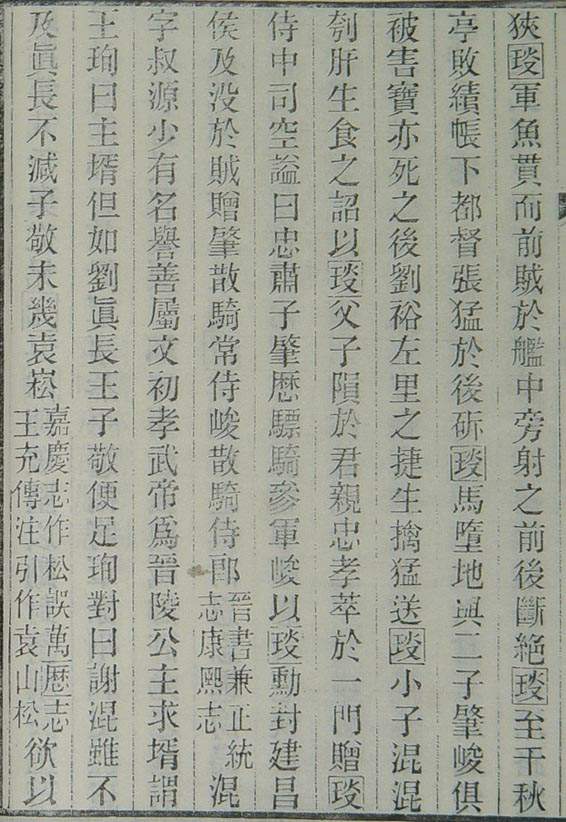 狹琰軍魚貫而前賊於艦中旁射之前後斷絶琰至千秋
亭敗績帳下都督張猛於後斫琰馬墮地與二子肇峻俱
被害寶亦死之後劉裕左里之捷生擒猛送琰小子混混
刳肝生食之詔以琰父子隕於君親忠孝萃於一門贈琰
侍中司空謚曰忠肅子肇歴驃騎參軍峻以琰勳封建昌
侯及没於賊贈肇散騎常侍峻散騎侍郎晉書兼正統志康熙志混
字叔源少有名譽善屬文初孝武帝爲晉陵公主求壻謂
王珣曰主壻但如劉眞長王子敬便足珣對曰謝混雖不
及眞長不减子敬未幾袁崧嘉慶志作松誤萬歴志王充傳注引作袁山松欲以